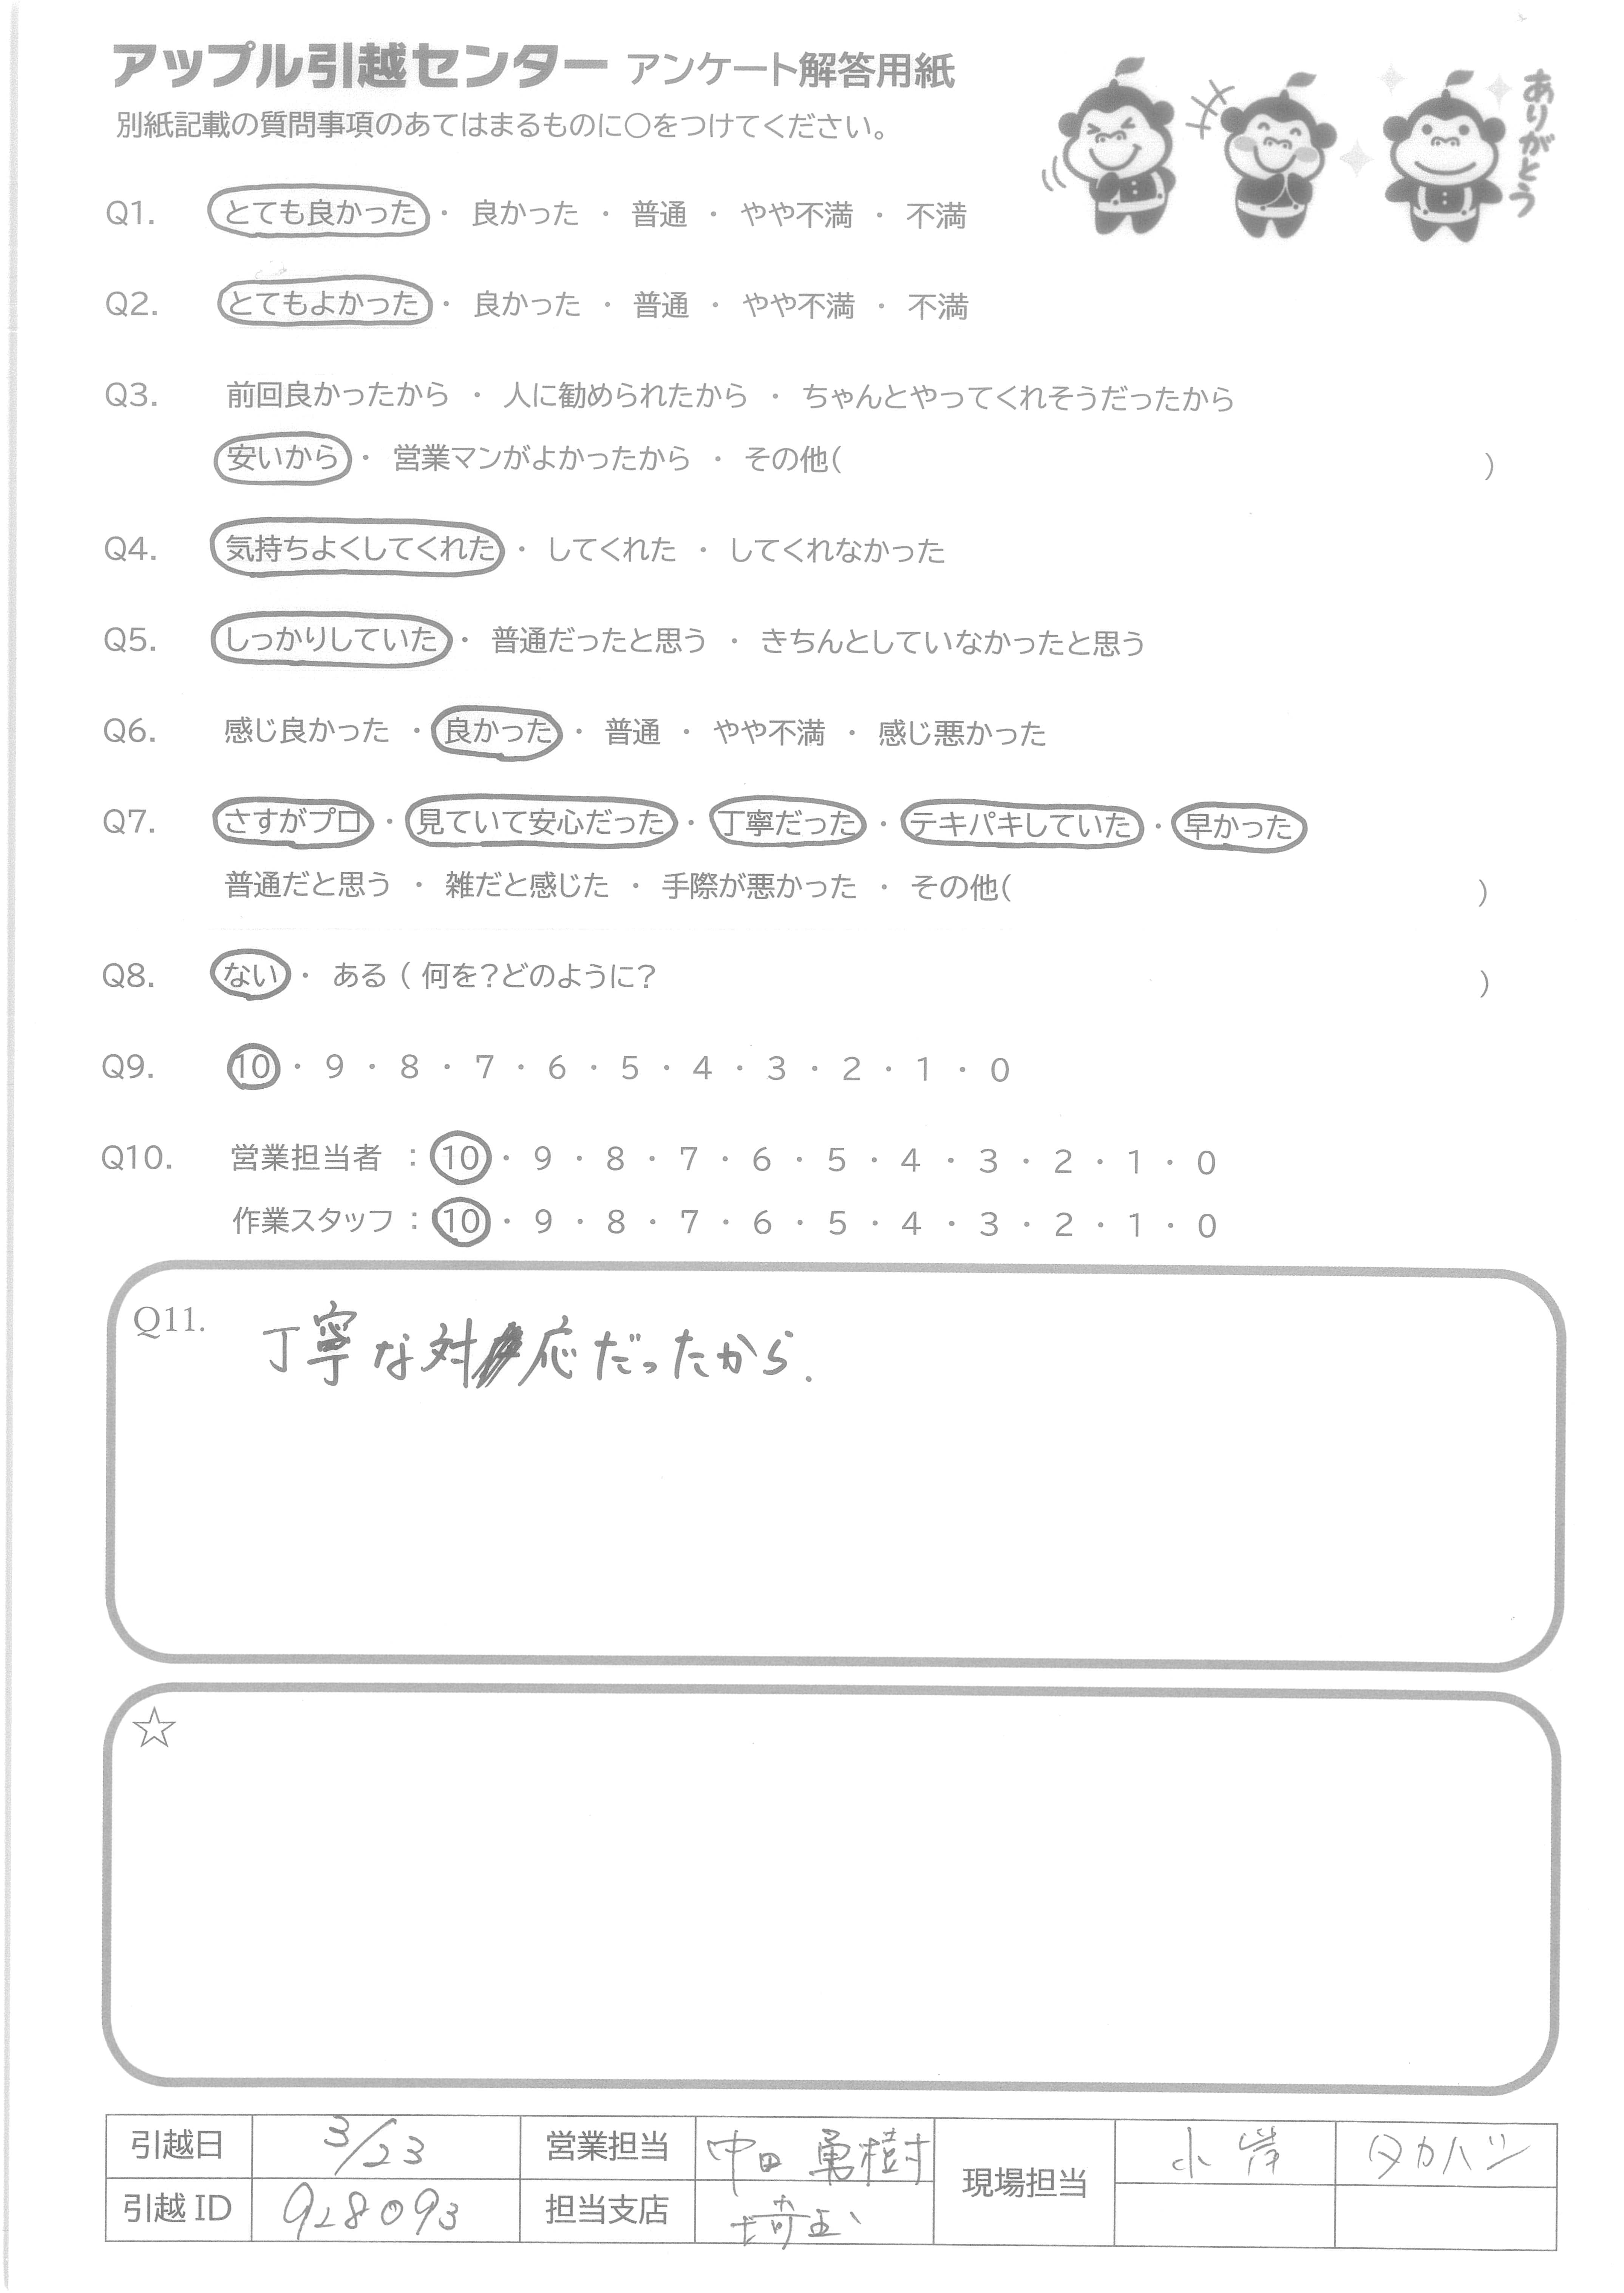 アップル引越センター アンケート解答用紙
別紙記載の質問事項のあてはまるものに○をつけてください。
ありがとう
Q1. とても良かった ・ 良かった ・ 普通 ・ やや不満 ・ 不満
Q2. とてもよかった ・ 良かった ・ 普通 ・ やや不満 ・ 不満
Q3. 前回良かったから ・ 人に勧められたから ・ ちゃんとやってくれそうだったから
安いから ・ 営業マンがよかったから ・ その他( )
Q4. 気持ちよくしてくれた ・ してくれた ・ してくれなかった
Q5. しっかりしていた ・ 普通だったと思う ・ きちんとしていなかったと思う
Q6. 感じ良かった ・ 良かった ・ 普通 ・ やや不満 ・ 感じ悪かった
Q7. さすがプロ ・ 見ていて安心だった ・ 丁寧だった ・ テキパキしていた ・ 早かった
普通だと思う ・ 雑だと感じた ・ 手際が悪かった ・ その他( )
Q8. ない ・ ある ( 何を?どのように? )
Q9. 10 ・ 9 ・ 8 ・ 7 ・ 6 ・ 5 ・ 4 ・ 3 ・ 2 ・ 1 ・ 0
Q10. 営業担当者 : 10 ・ 9 ・ 8 ・ 7 ・ 6 ・ 5 ・ 4 ・ 3 ・ 2 ・ 1 ・ 0
作業スタッフ : 10 ・ 9 ・ 8 ・ 7 ・ 6 ・ 5 ・ 4 ・ 3 ・ 2 ・ 1 ・ 0
Q11. 丁寧な対応だったから.
☆
引越日 3/23 営業担当 中田 勇樹 現場担当 小岸 タカハシ
引越 ID 928093 担当支店 埼玉